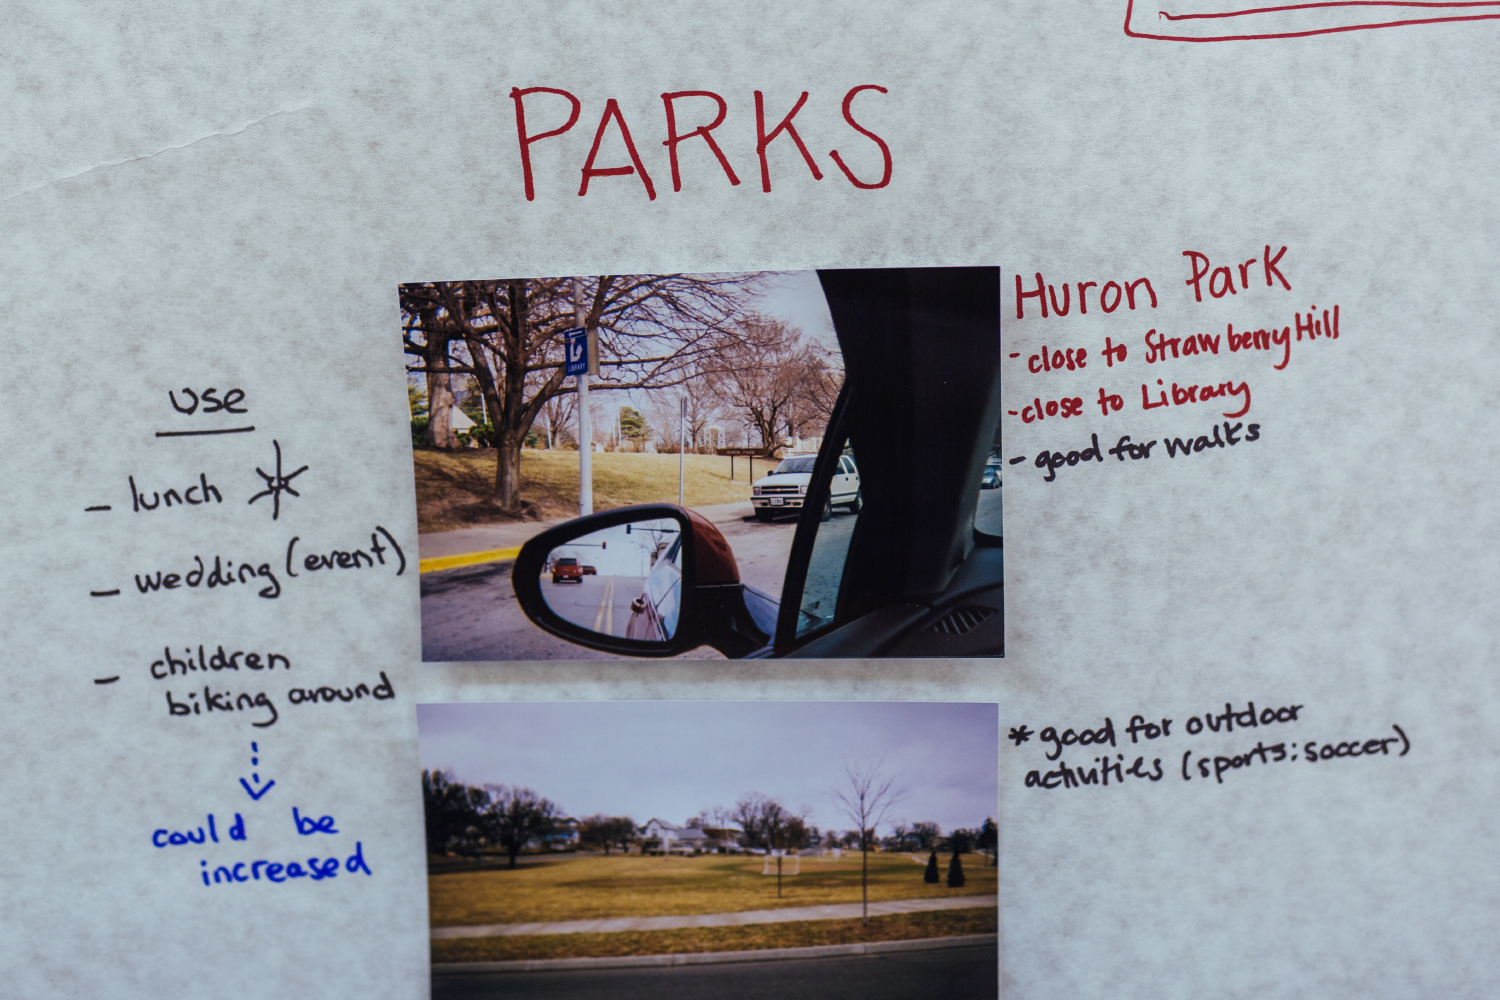 PARKS
Huron Park
- close to Strawberry Hill
- close to Library
- good for walks
LIBRARY
HURON PARK
use
- lunch
- wedding (event)
- children
biking around
could be
increased
* good for outdoor
activities (sports: soccer)